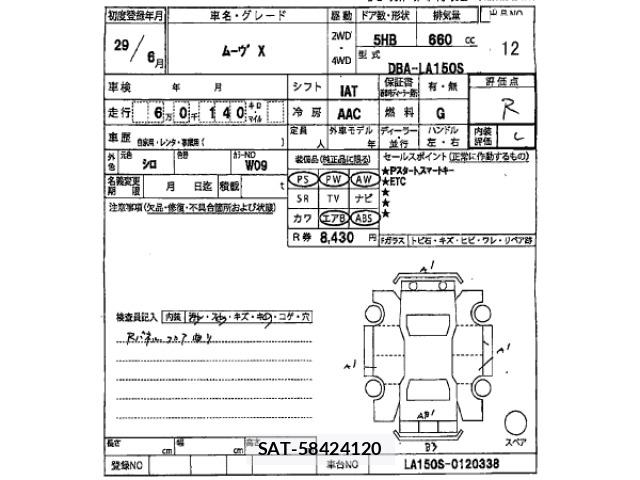 初度登録年月 車名・グレード 駆動 ドア数・形状 排気量 出品NO
29/6月 ムーヴ X 2WD・4WD 5HB 660 cc 12
型式 DBA-LA150S
車検 年 月 シフト IAT 保証書 有・無 評価点
走行 6万0千140キロ マイル 冷房 AAC 燃料 G R
車歴 自家用・レンタ・事業用( ) 定員 人 外車モデル 年 ディーラー 並行 ハンドル 左・右 内装評価 C
外色 元色 シロ 色替 カラーNO W09 装備品(純正品に限る) セールスポイント(正常に作動するもの)
名義変更期限 月 日迄 積載 t PS PW AW ★Pスタートスマートキー
★ETC
SR TV ナビ ★
★
注意事項(欠品・修復・不具合箇所および状態) カワ エアB ABS ★
R券 8,430 円 Fガラス トビ石・キズ・ヒビ・ワレ・リペア跡
A1
検査員記入 内装 汚レ・スレ・キズ・キレ・コゲ・穴
Rパネル コアサ 曲り
A1 A1
AB1
B3 スペア
長さ cm 幅 cm 高さ SAT-58424120
登録NO 車台NO LA150S-0120338